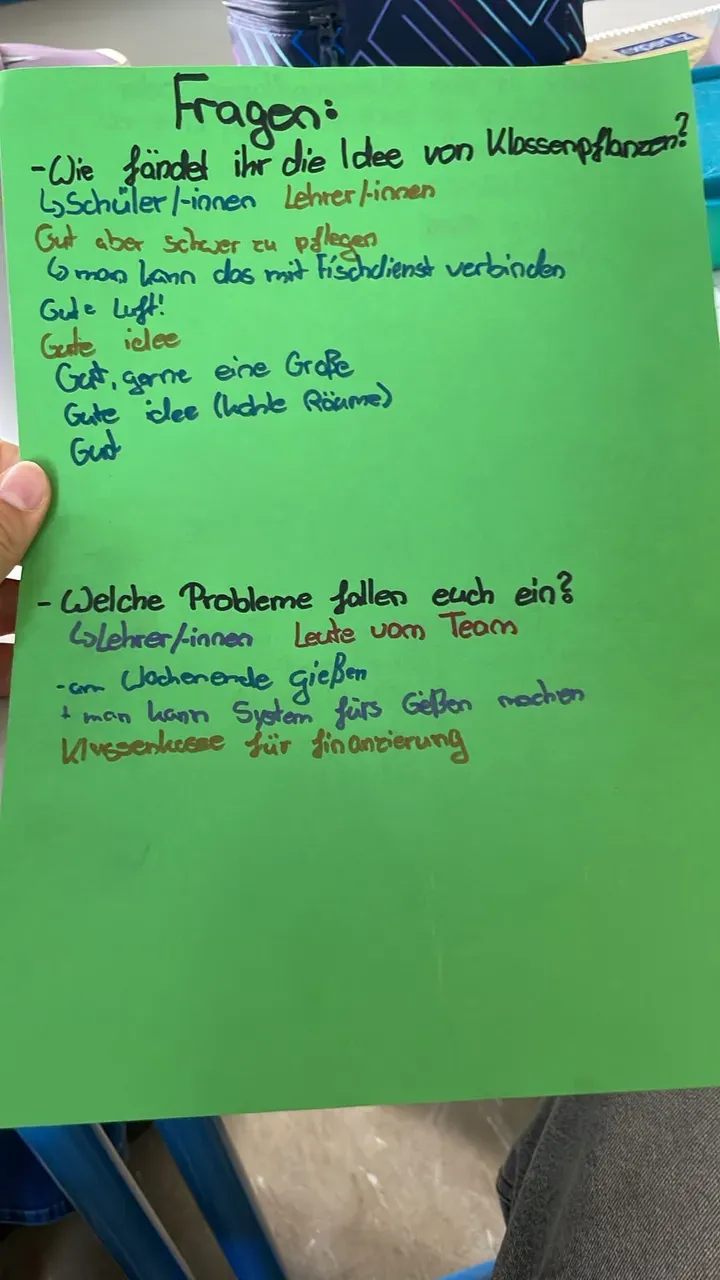 Fragen:
-Wie fändet ihr die Idee von Klassenpflanzen?
↳Schüler/-innen Lehrer/-innen
Gut aber schwer zu pflegen
↳man kann das mit Fischdienst verbinden
Gute Luft!
Gute idee
Gut, gerne eine Große
Gute idee (kahle Räume)
Gut
- Welche Probleme fallen euch ein?
↳Lehrer/-innen Leute vom Team
-am Wochenende gießen
+ man kann System fürs Gießen machen
Klassenkasse für finanzierung